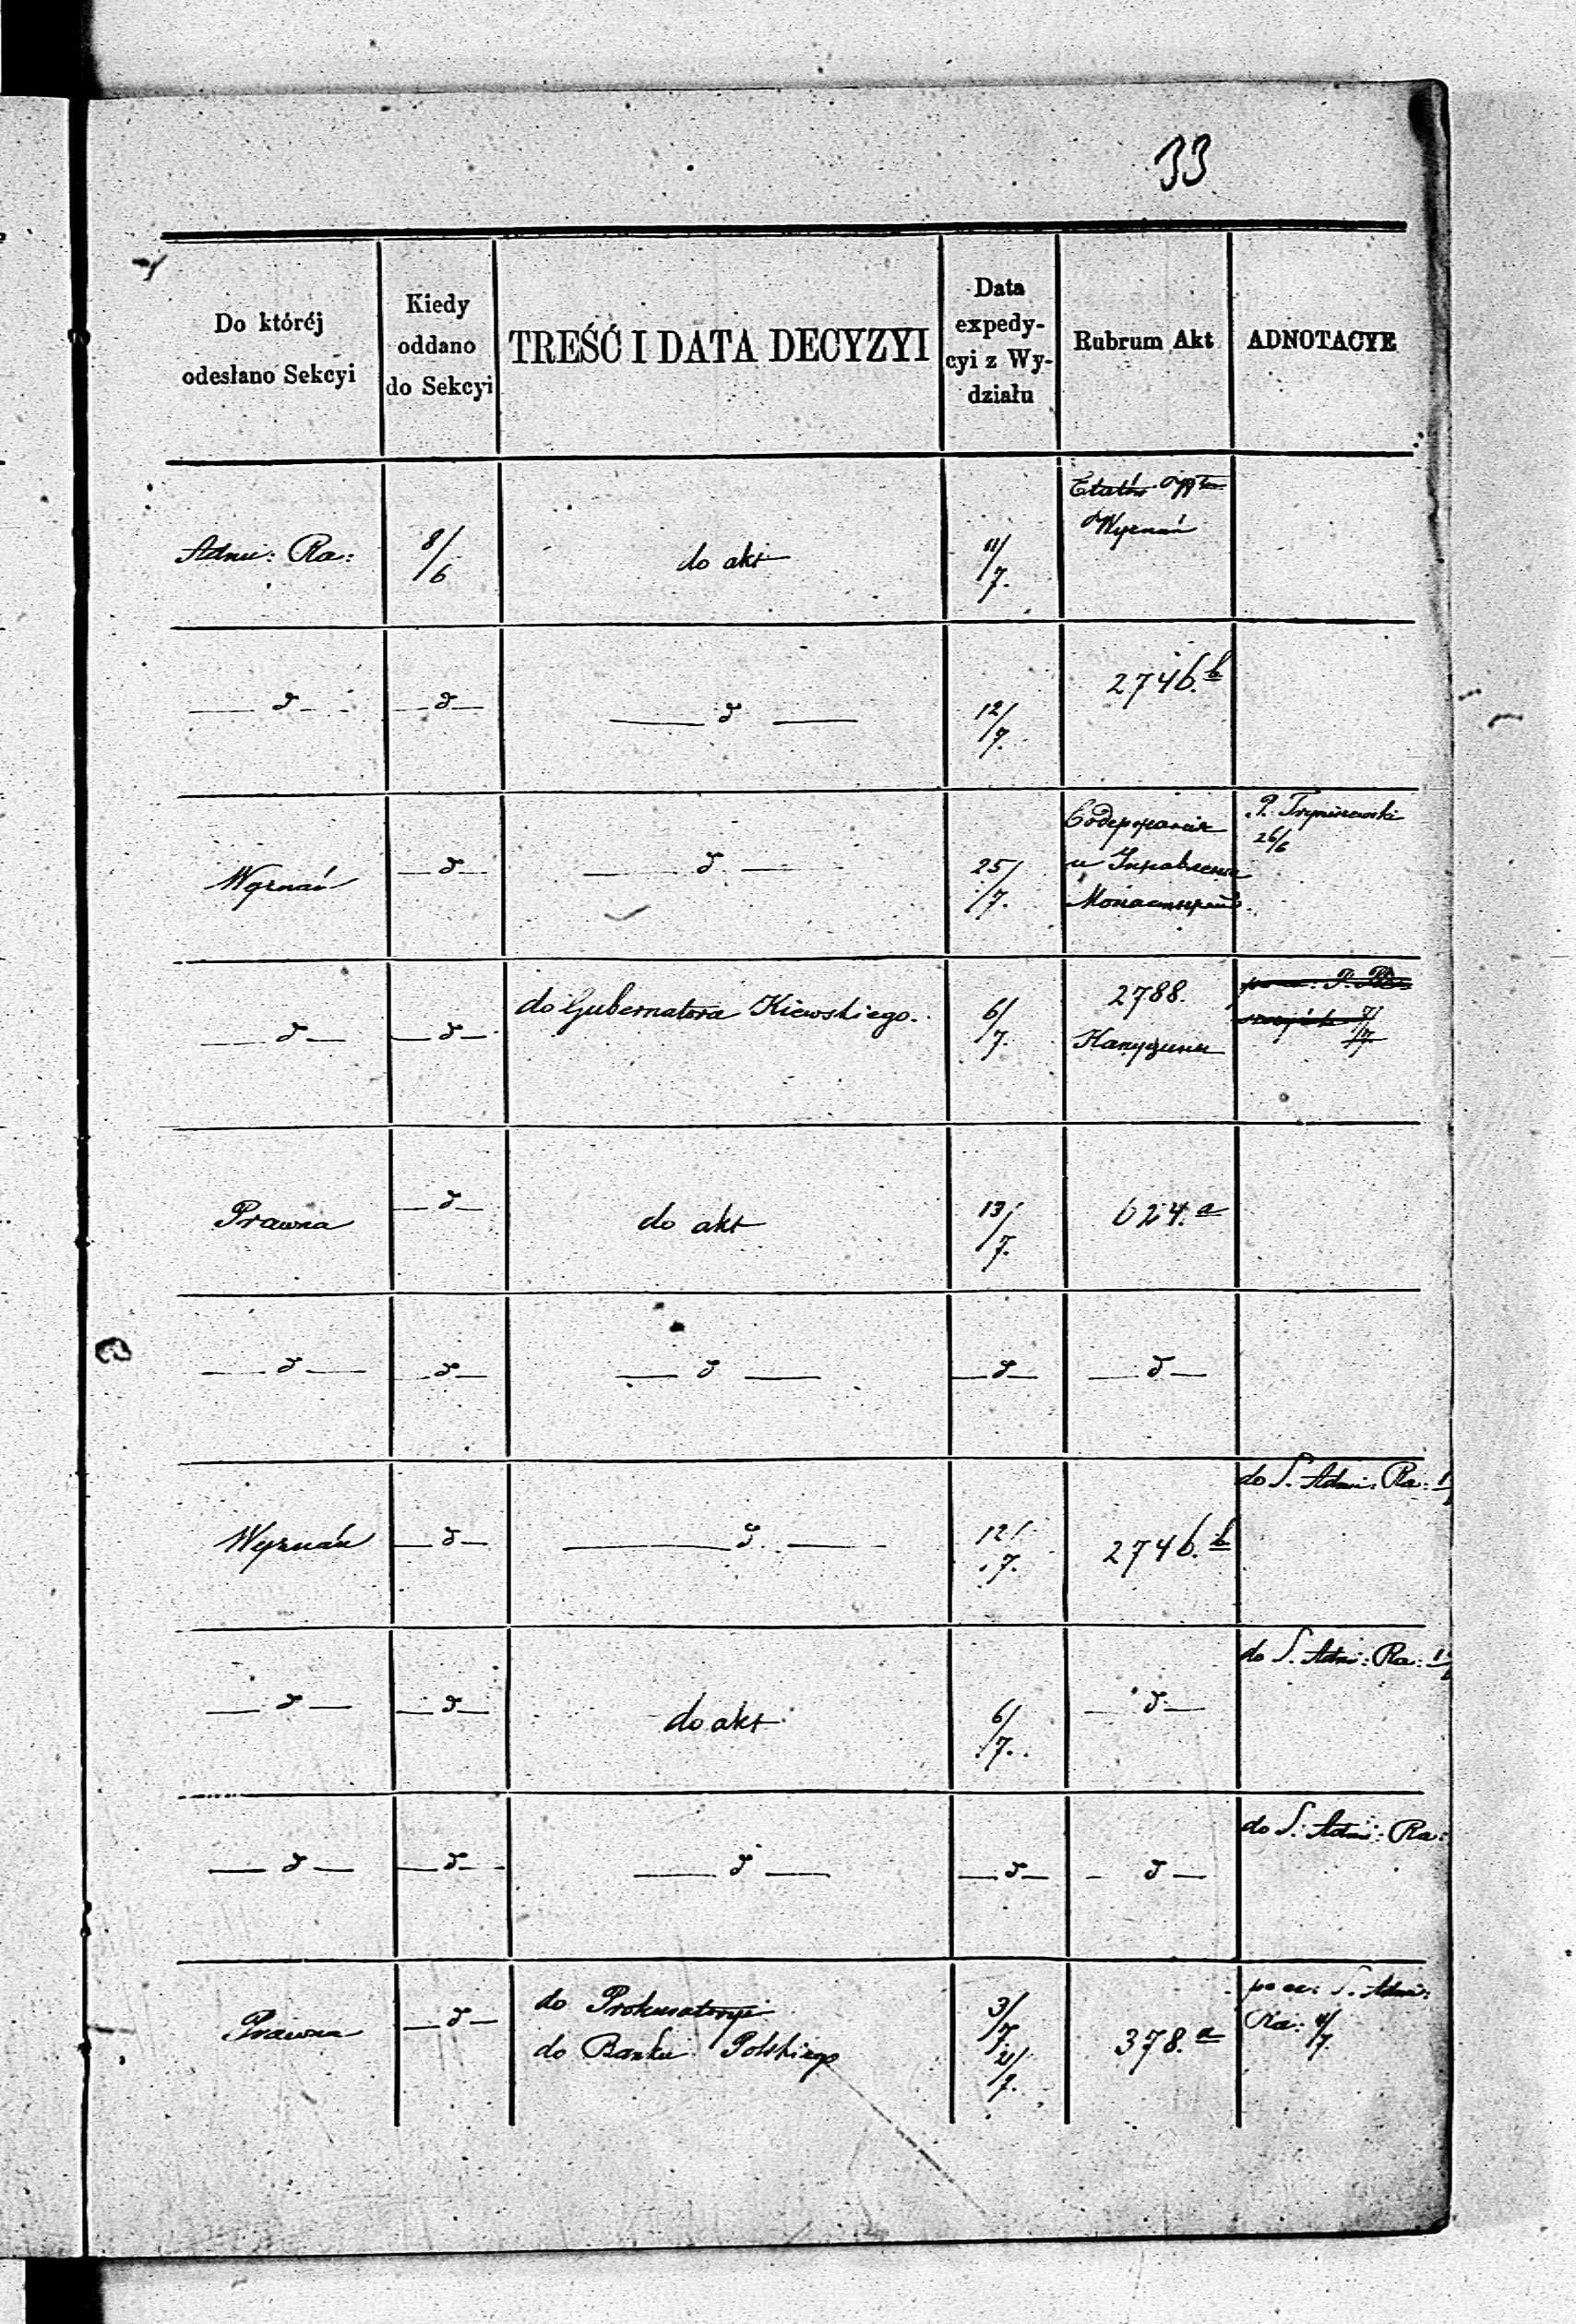 33
Do któréj
odesłano Sekcyi
Kiedy
oddano
do Sekcyi
TREŚĆ I DATA DECYZYI
Data
expedy-
cyi z Wy-
działu
Rubrum Akt
ADNOTACYE
Adm: Ra:
8/6
do akt
11/7.
Etatów
Wyznań
— d —
— d —
— d —
12/7.
2746.b
Wyznań
— d —
— d —
25/7.
Содержания
и
Монастырей
P.
26/6
— d —
— d —
do Gubernatora Kiewskiego.
6/7.
2788.
Канцеляріи
7/7
Prawna
— d —
do akt
13/7.
624.a
— d —
— d —
— d —
— d —
— d —
Wyznań
— d —
— d —
12/7.
2746.b
do S. Adm: Ra:
— d —
— d —
do akt
6/7.
— d —
do S. Adm: Ra:
— d —
— d —
— d —
— d —
— d —
do S. Adm: Ra:
Prawna
— d —
do Prokuratoryi
do Banku Polskiego
3/7.
21/7.
378.a
S. Adm:
Ra: 11/7.